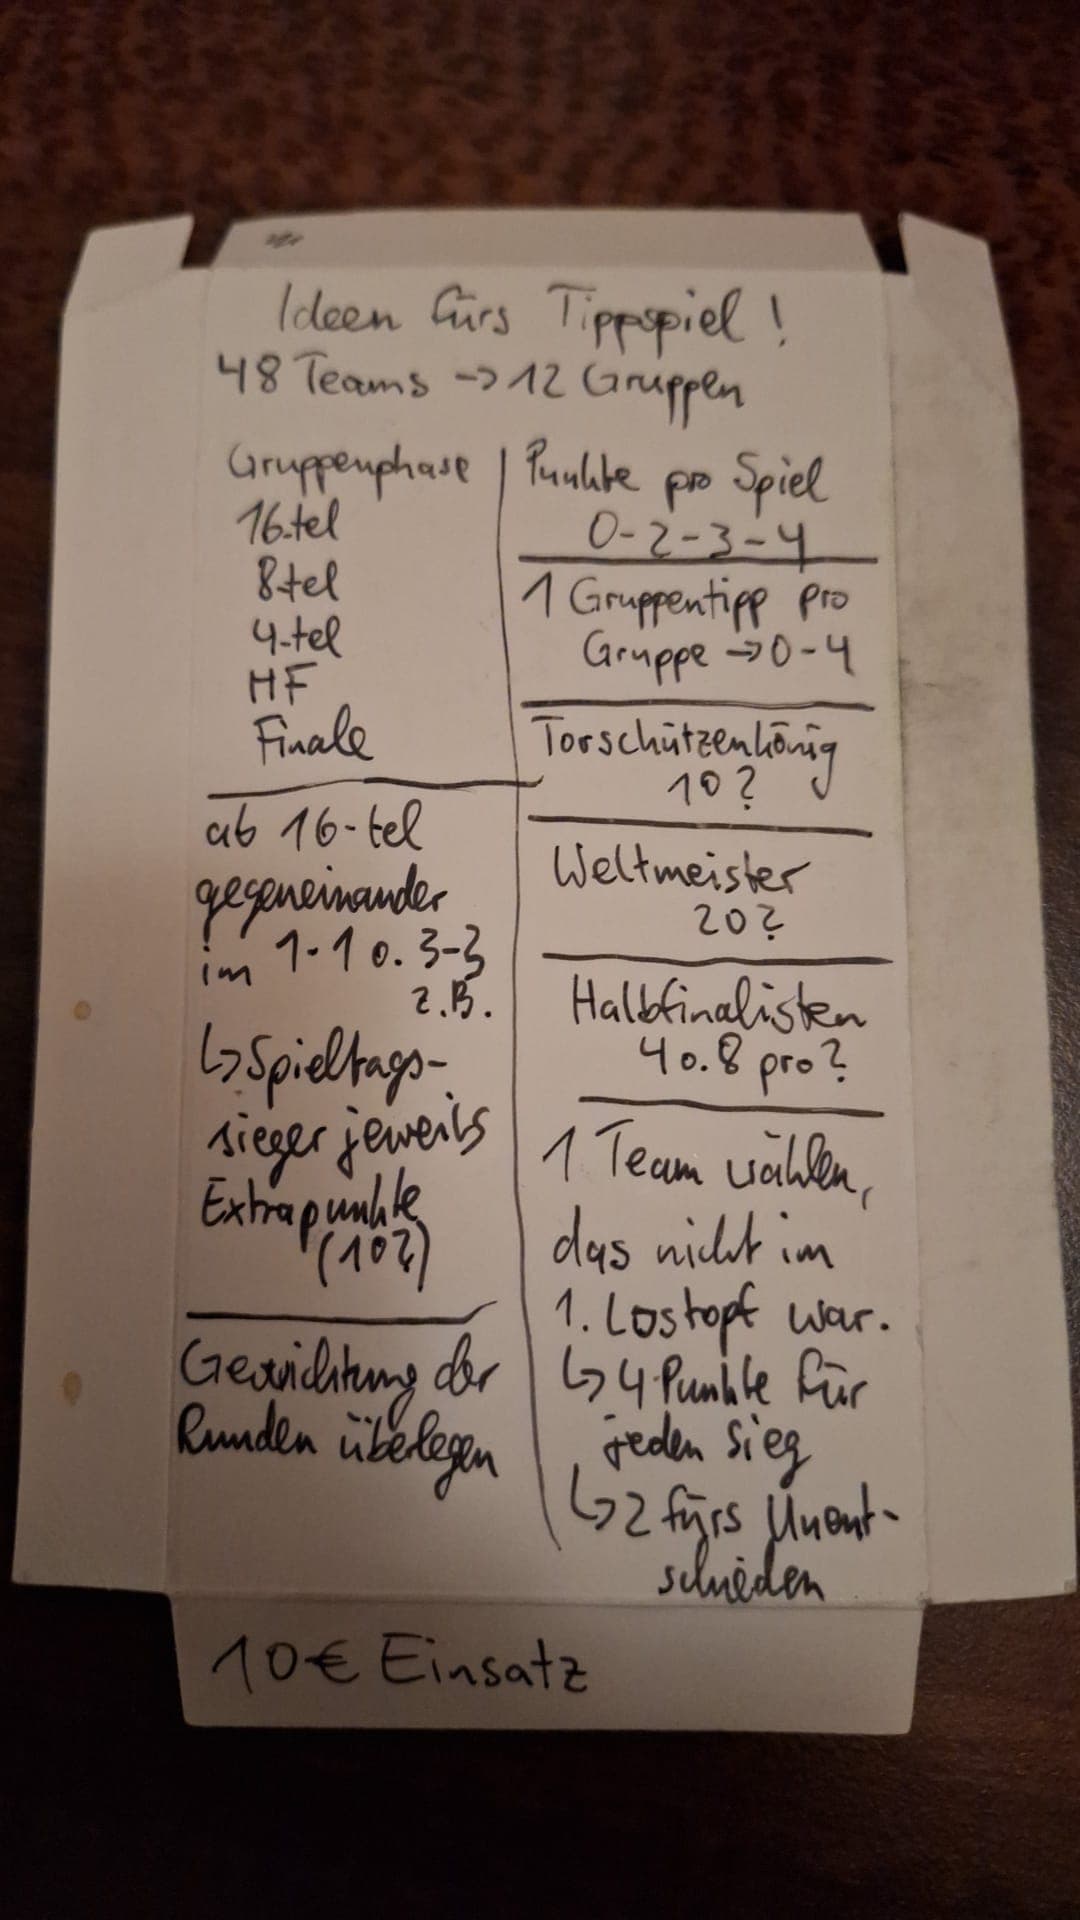 Ideen fürs Tippspiel!
48 Teams -> 12 Gruppen
Gruppenphase
16-tel
8-tel
4-tel
HF
Finale
ab 16-tel
gegeneinander
im 1-1 o. 3-3
z.B.
↳ Spieltags-
sieger jeweils
Extrapunkte
(10?)
Gewichtung der
Runden überlegen
Punkte pro Spiel
0-2-3-4
1 Gruppentipp pro
Gruppe -> 0-4
Torschützenkönig
10?
Weltmeister
20?
Halbfinalisten
4 o. 8 pro?
1 Team wählen,
das nicht im
1. Lostopf war.
↳ 4 Punkte für
jeden Sieg
↳ 2 fürs Unent-
schieden
10€ Einsatz